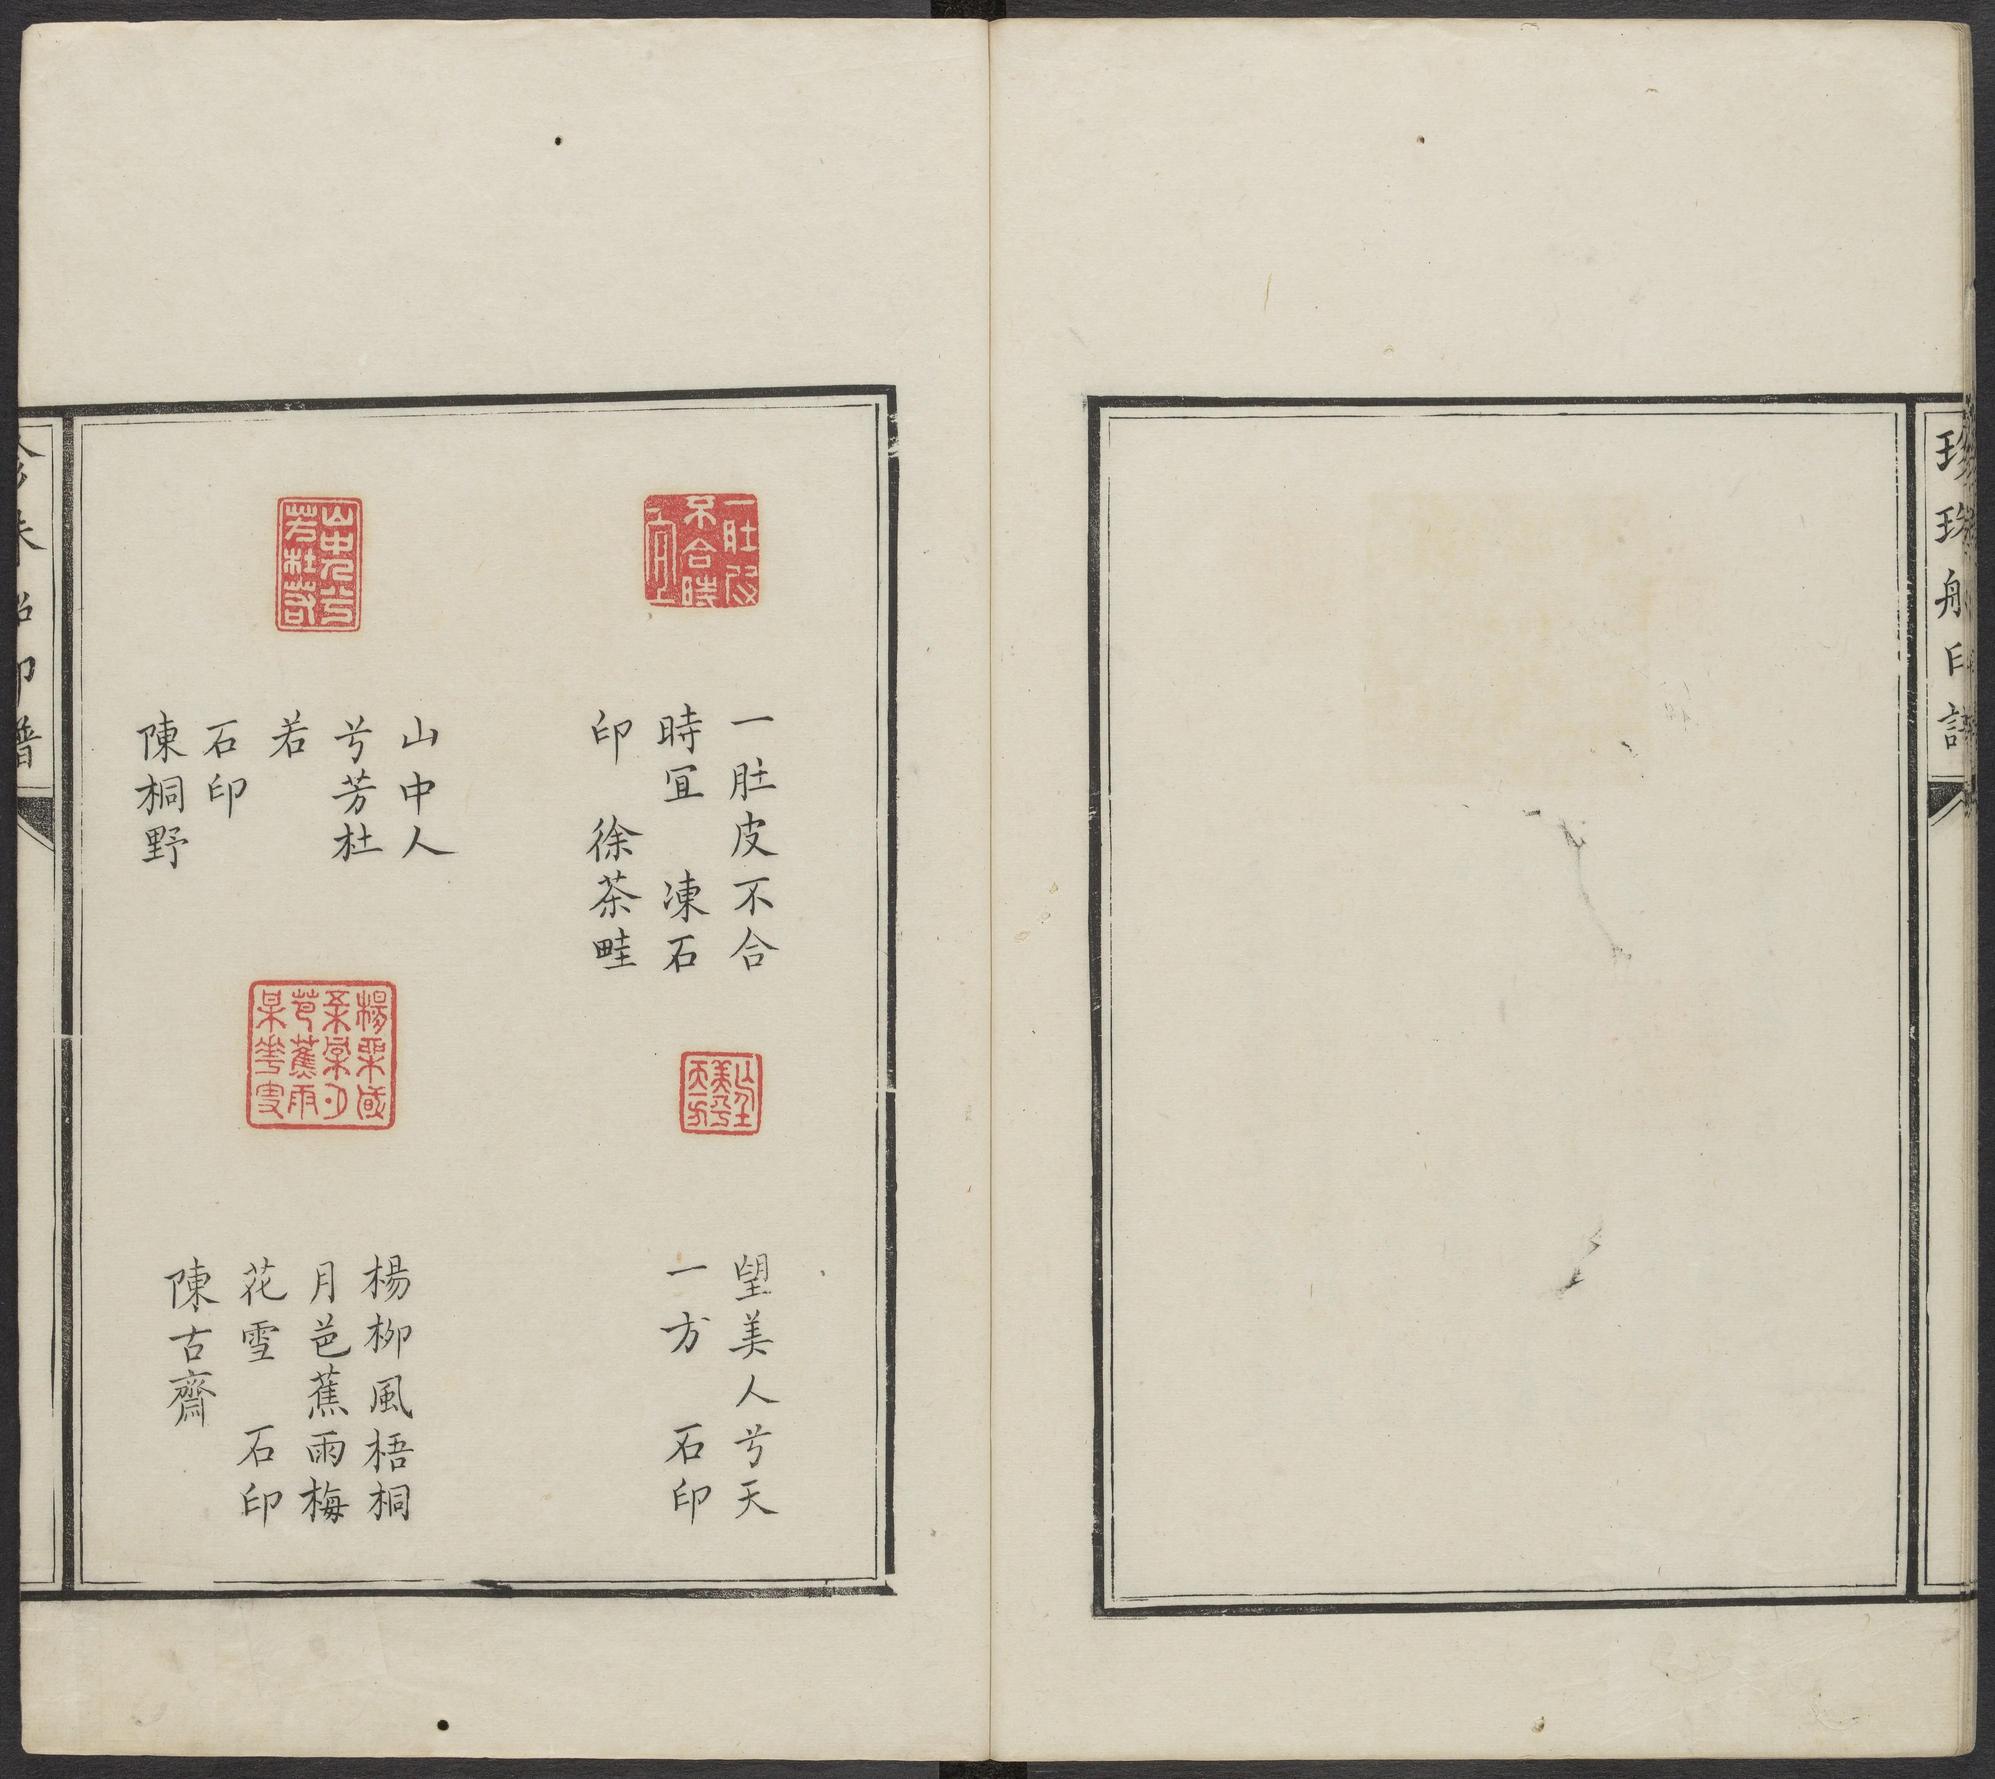 珍珠船印譜
一肚皮不合
時宜 凍石
印 徐茶畦
望美人兮天
一方 石印
山中人
兮芳杜
若
石印
陳桐野
楊柳風梧桐
月芭蕉雨梅
花雪 石印
陳古齋
珍珠船印譜